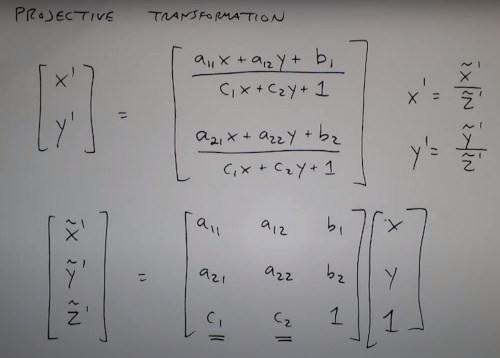 PROJECTIVE TRANSFORMATION
[x' y'] = [(a₁₁x + a₁₂y + b₁)/(c₁x + c₂y + 1) (a₂₁x + a₂₂y + b₂)/(c₁x + c₂y + 1)]
x' = x̃'/z̃'
y' = ỹ'/z̃'
[x̃' ỹ' z̃'] = [a₁₁ a₁₂ b₁
a₂₁ a₂₂ b₂
c₁ c₂ 1] [x y 1]